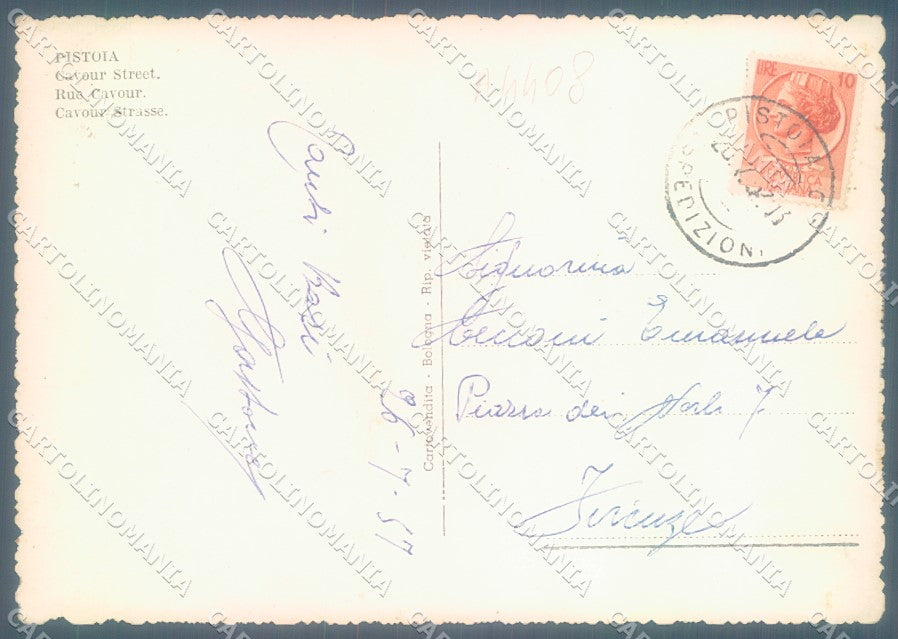 PISTOIA
Cavour Street.
Rue Cavour.
Cavour Strasse.
A4408
LIRE 10
PISTOIA
SPEDIZIONI
Cartovendita - Bologna - Rip. vietata
Baci
26-7-57
Signorina
Cecconi Emanuela
Piazza dei 7
Firenze
CARTOLINOMANIA